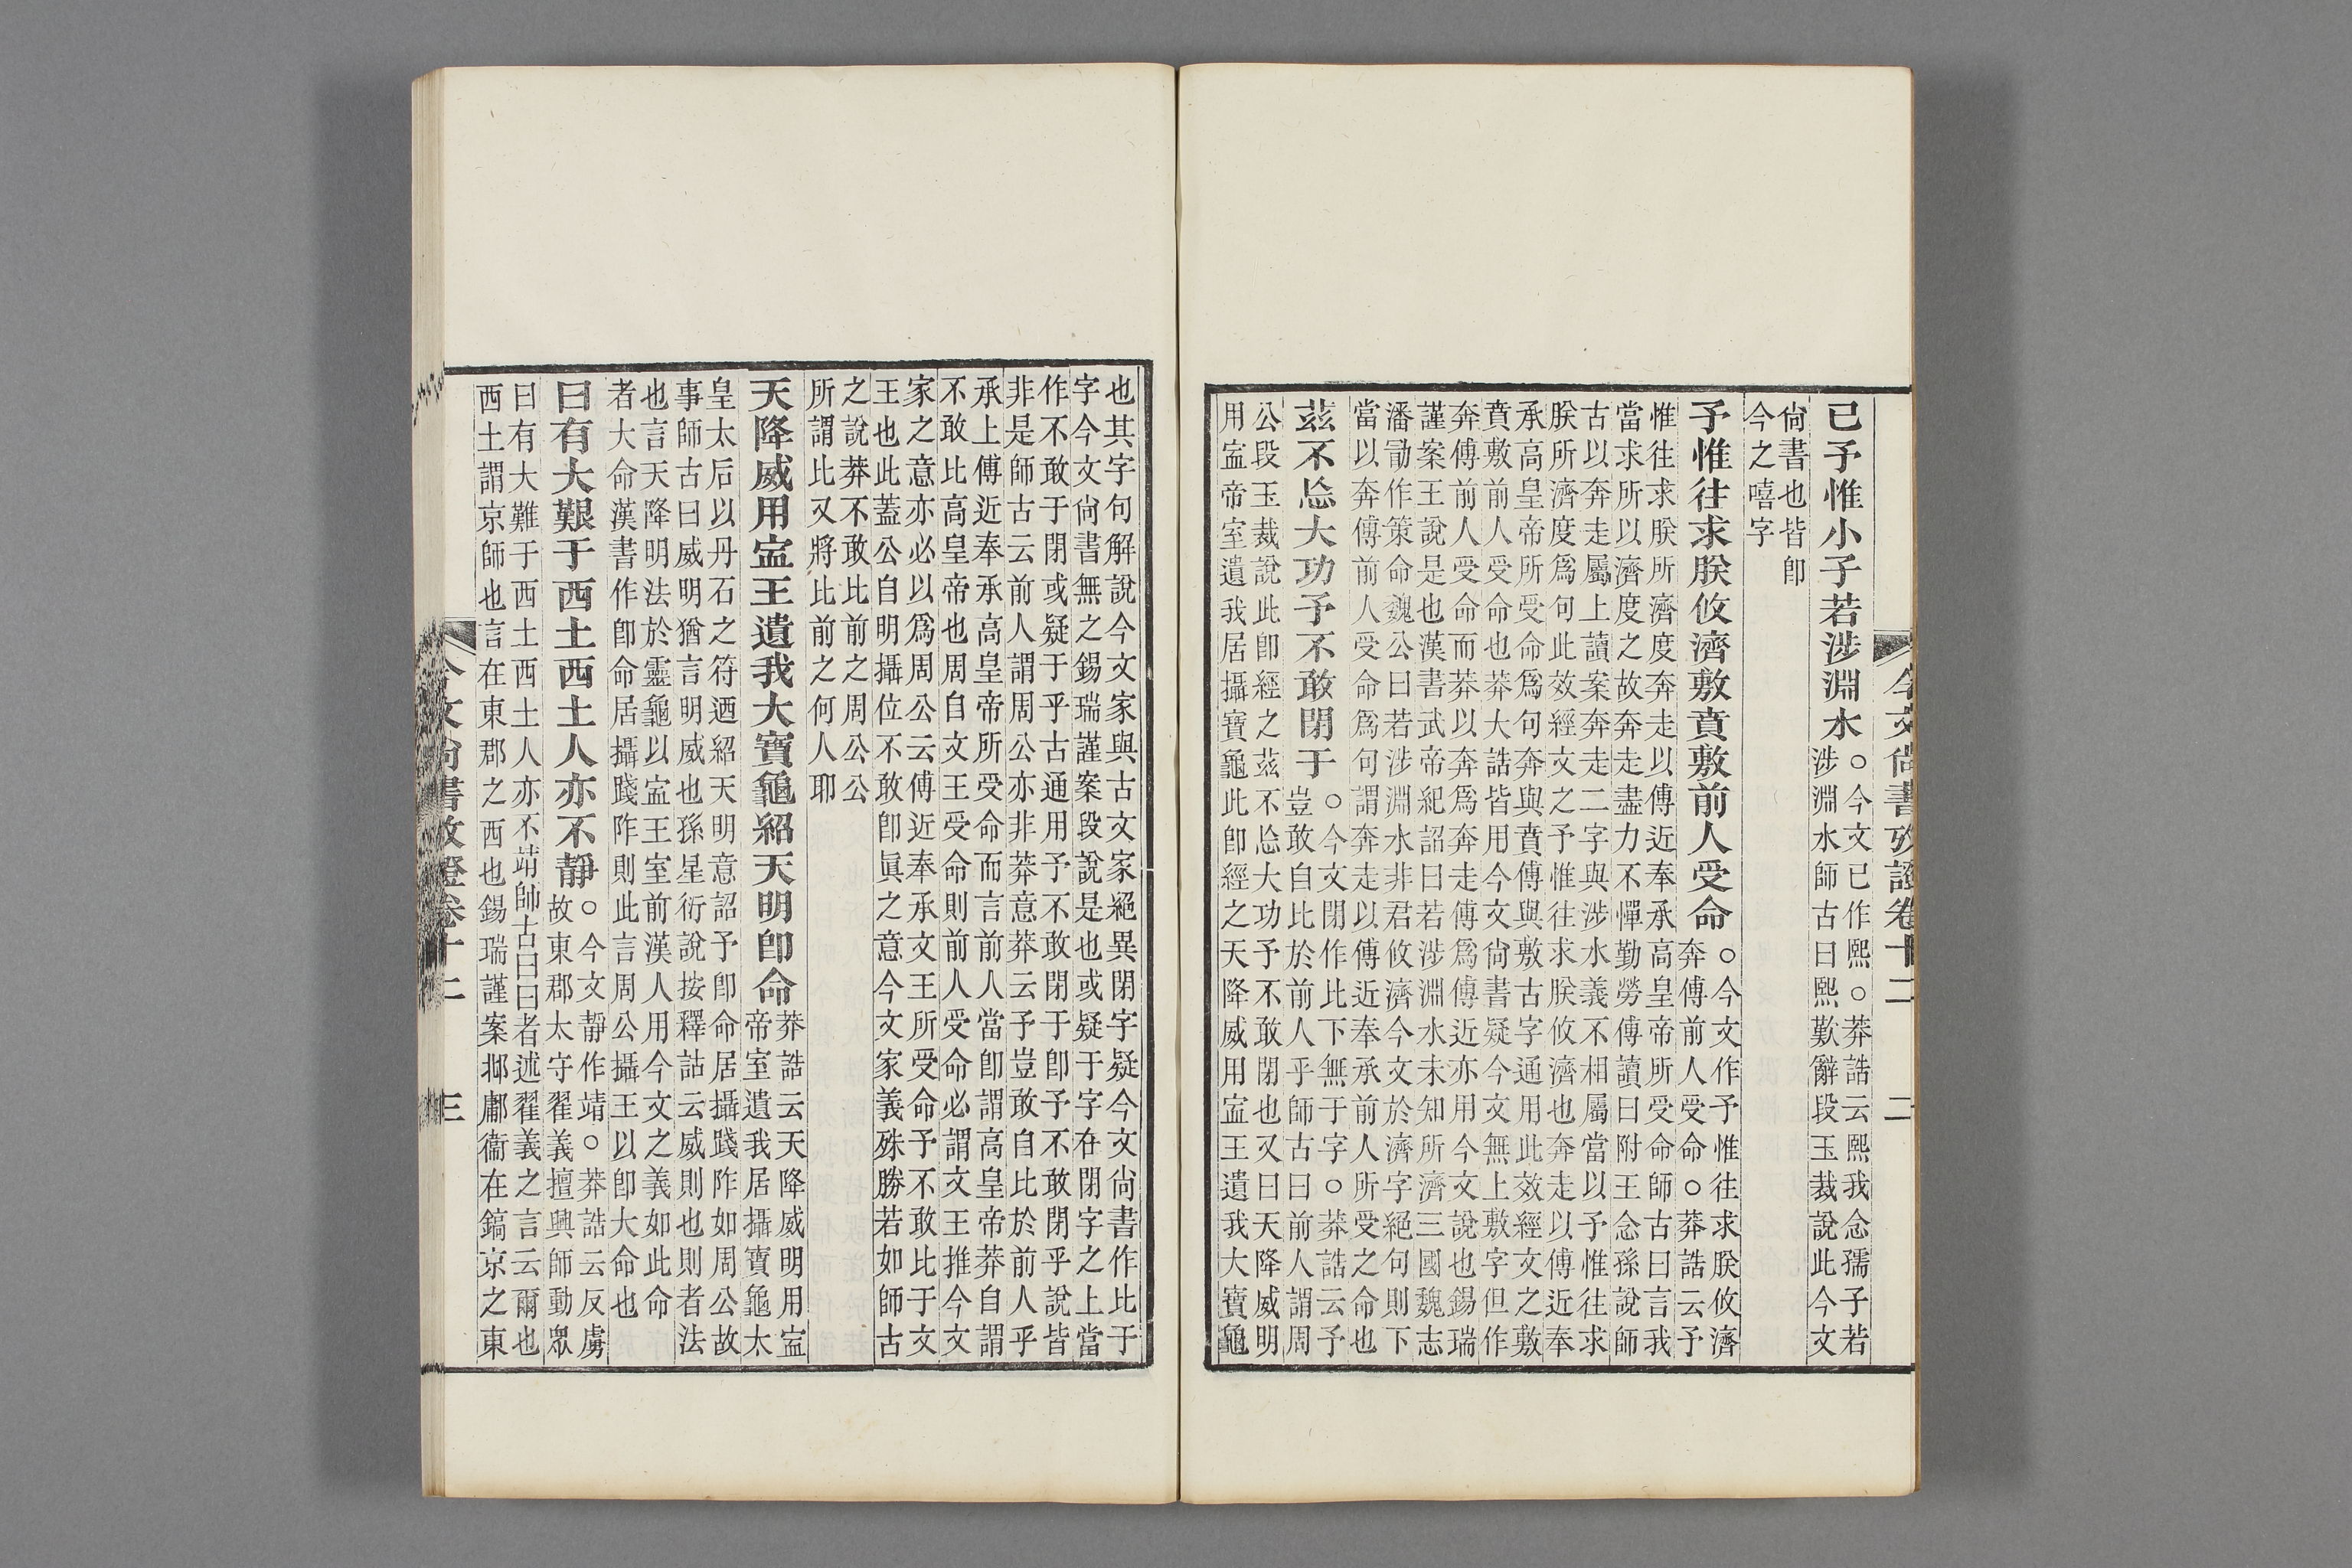 今文尚書攷證卷十二 二
已予惟小子若涉淵水
○今文已作熙○莽誥云熙我念孺子若
涉淵水師古曰熙歎辭段玉裁說此今文
尚書也皆卽
今之嘻字
予惟往求朕攸濟敷賁敷前人受命
○今文作予惟往求朕攸濟
奔傅前人受命○莽誥云予
惟往求朕所濟度奔走以傅近奉承高皇帝所受命師古曰言我
當求所以濟度之故奔走盡力不憚勤勞傅讀曰附王念孫說師
古以奔走屬上讀案奔走二字與涉水義不相屬當以予惟往求
朕所濟度爲句此效經文之予惟往求朕攸濟也奔走以傅近奉
承高皇帝所受命爲句奔與賁傅與敷古字通用此效經文之敷
賁敷前人受命也莽大誥皆用今文尚書疑今文無上敷字但作
奔傅前人受命而莽以奔爲奔走傅爲傅近亦用今文說也錫瑞
謹案王說是也漢書武帝紀詔曰若涉淵水未知所濟三國魏志
潘勖作策命魏公曰若涉淵水非君攸濟今文於濟字絕句則下
當以奔傅前人受命爲句謂奔走以傅近奉承前人所受之命也
茲不忘大功予不敢閉于
○今文閉作比下無于字○莽誥云予
豈敢自比於前人乎師古曰前人謂周
公段玉裁說此卽經之茲不忘大功予不敢閉也又曰天降威明
用寍帝室遺我居攝寶龜此卽經之天降威用寍王遺我大寶龜
也其字句解說今文家與古文家絕異閉字疑今文尚書作比于
字今文尚書無之錫瑞謹案段說是也或疑于字在閉字之上當
作不敢于閉或疑于乎古通用予不敢閉于卽予不敢閉乎說皆
非是師古云前人謂周公亦非莽意莽云予豈敢自比於前人乎
承上傅近奉承高皇帝所受命而言前人當卽謂高皇帝莽自謂
不敢比高皇帝也周自文王受命則前人受命必謂文王推今文
家之意亦必以爲周公云傅近奉承文王所受命予不敢比于文
王也此蓋公自明攝位不敢卽眞之意今文家義殊勝若如師古
之說莽不敢比前之周公公
所謂比又將比前之何人耶
天降威用寍王遺我大寶龜紹天明卽命
莽誥云天降威明用寍
帝室遺我居攝寶龜太
皇太后以丹石之符迺紹天明意詔予卽命居攝踐阼如周公故
事師古曰威明猶言明威也孫星衍說按釋詁云威則也則者法
也言天降明法於靈龜以寍王室前漢人用今文之義如此命
者大命漢書作卽命居攝踐阼則此言周公攝王以卽大命也
曰有大艱于西土西土人亦不靜
○今文靜作靖○莽誥云反虜
故東郡太守翟義擅興師動眾
曰有大難于西土西土人亦不靖師古曰曰者述翟義之言云爾也
西土謂京師也言在東郡之西也錫瑞謹案邶鄘衞在鎬京之東
今文尚書攷證卷十二 三